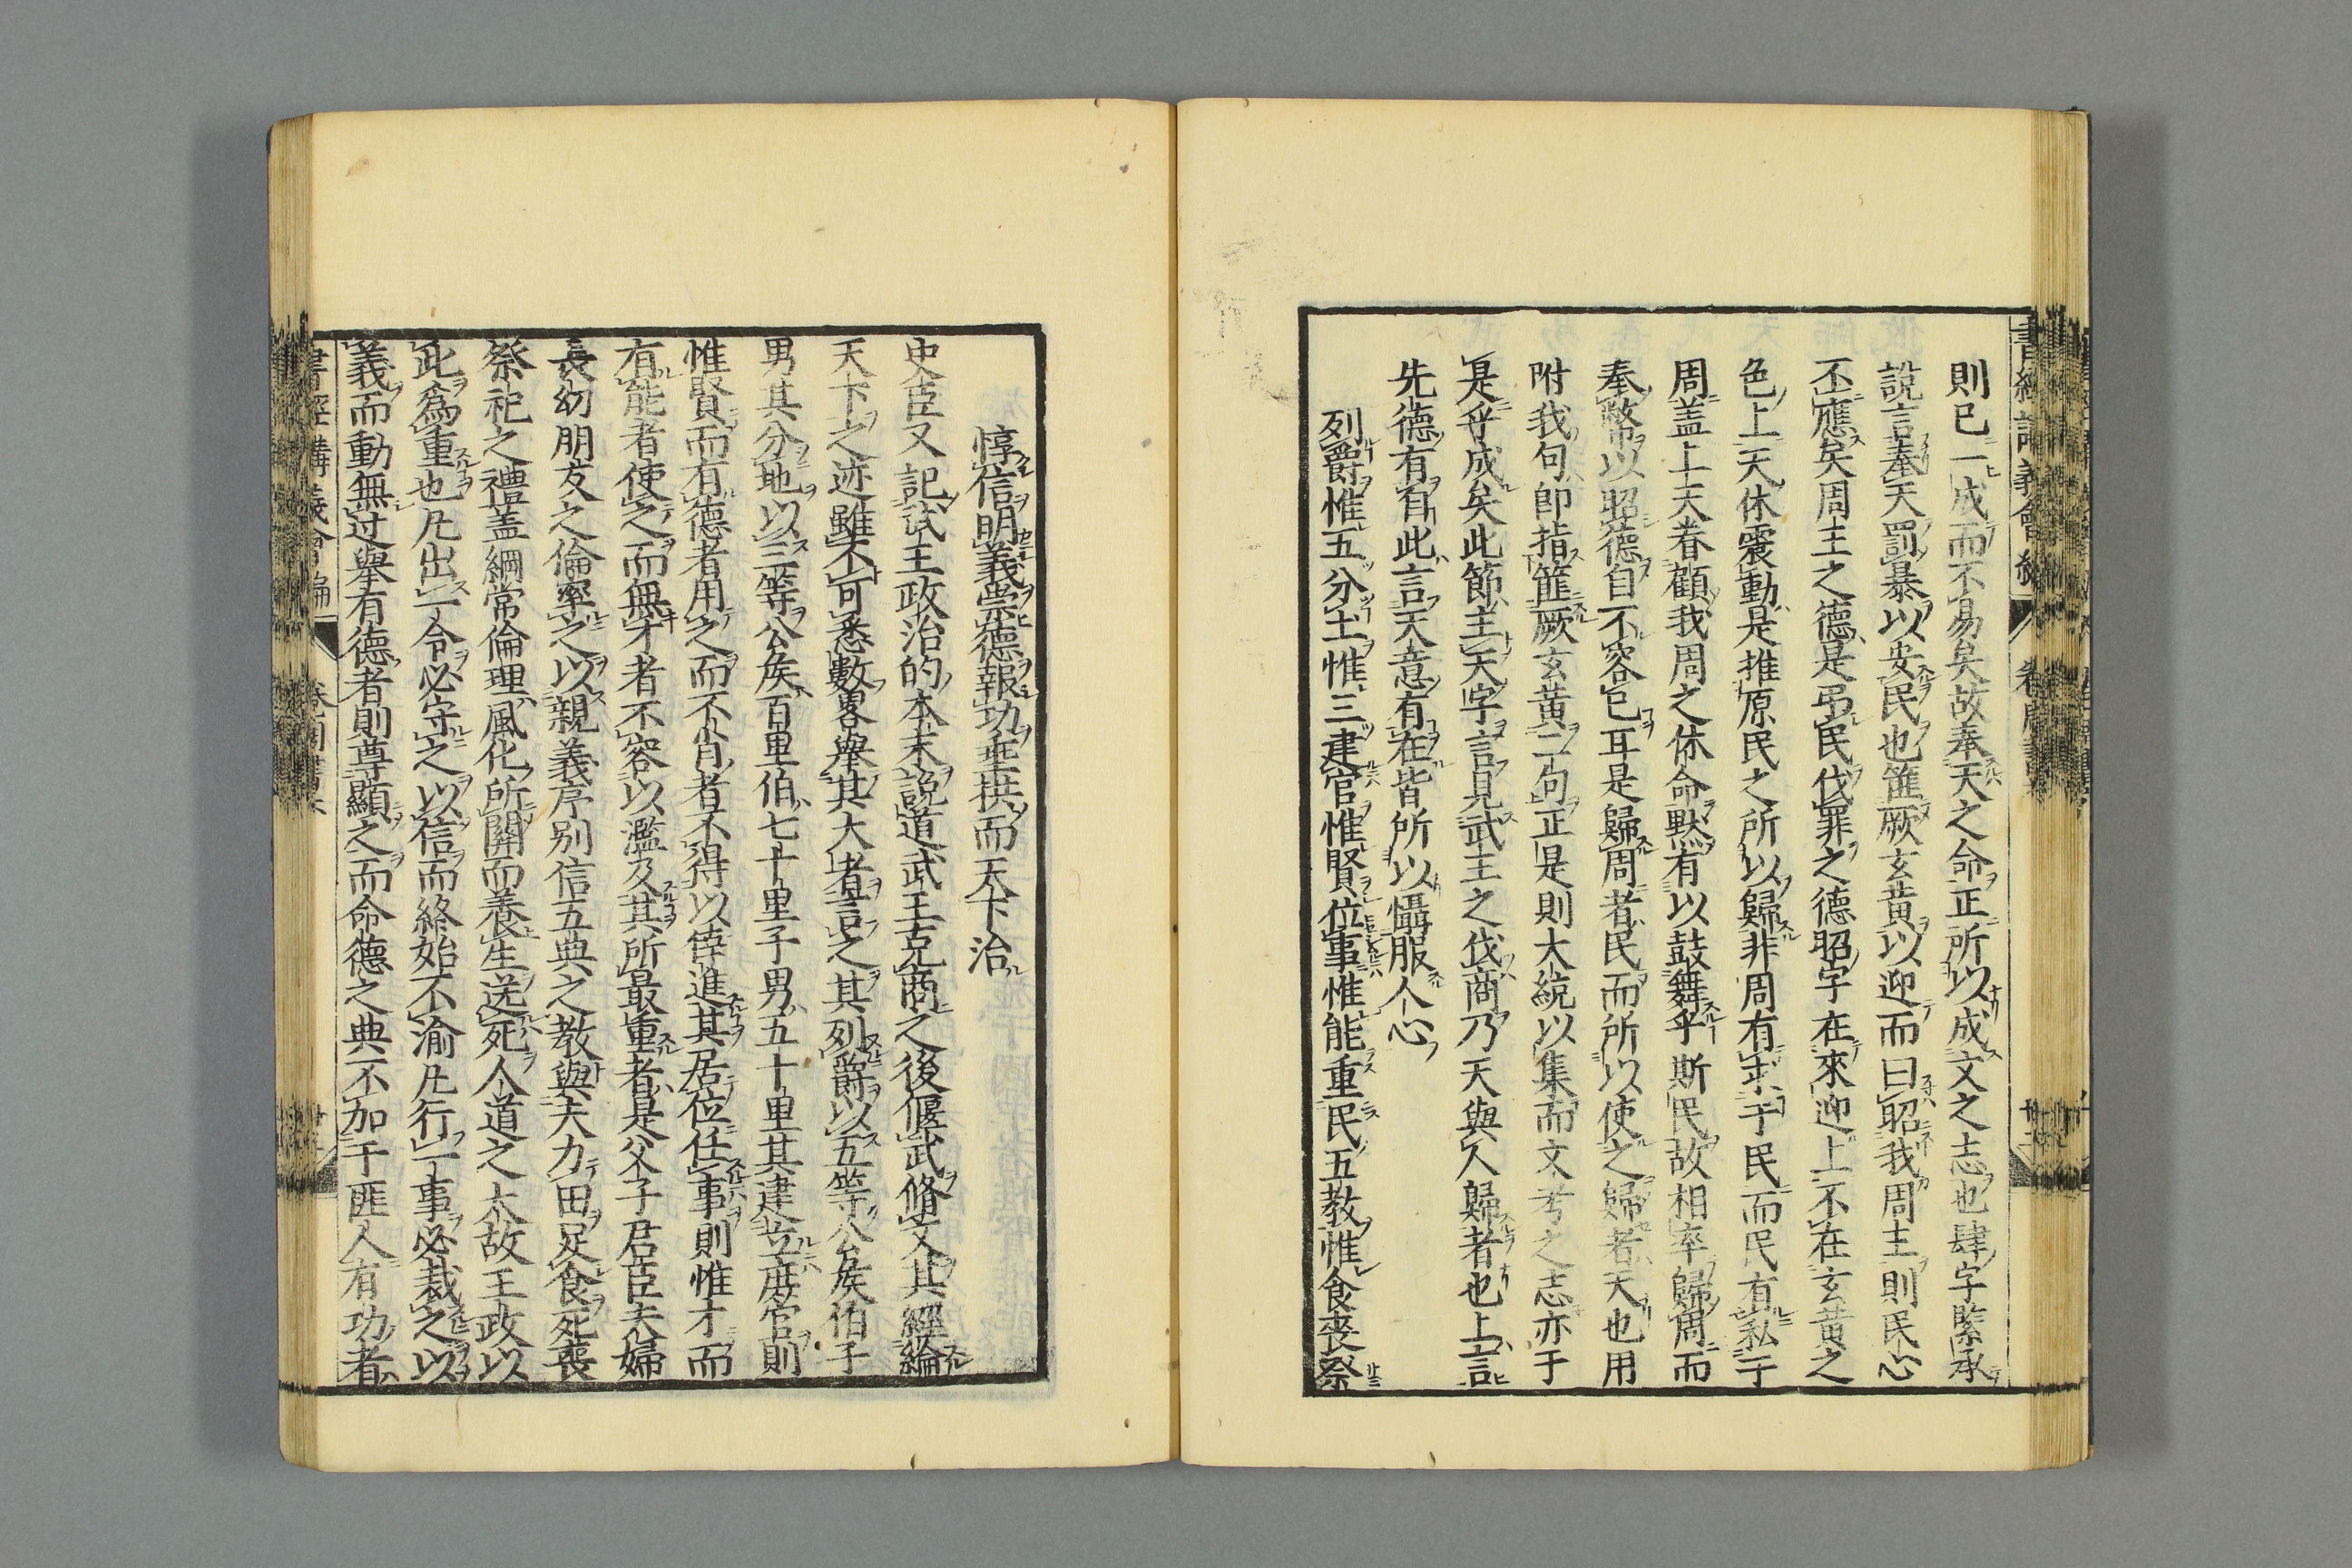 則已一成而不易矣故奉天之命正所以成文之志也肆字緊承
說言奉天罰暴以安民也篚厥玄黄以迎而曰昭我周王則民心
丕應矣周王之德是吊民伐罪之德昭字在來迎上不在玄黄之
色上天休震動是推原民之所以歸非周有求于民而民有私于
周盖上天眷顧我周之休命默有以鼓舞乎斯民故相率歸周而
奉幣以昭德自不容已耳是歸周者民而所以使之歸者天也用
附我句即指篚厥玄黄二句正是則大統以集而文考之志亦于
是乎成矣此節主天字言見武王之伐商乃天與人歸者也上言
先德有自此言天意有在皆所以懾服人心
列爵惟五分土惟三建官惟賢位事惟能重民五教惟食喪祭
惇信明義崇德報功垂拱而天下治
史臣又記武王政治的本末說道武王克商之後偃武脩文其經綸
天下之迹雖不可悉數畧舉其大者言之其列爵以五等公矦伯子
男其分地以三等公矦百里伯七十里子男五十里其建立庶官則
惟賢而有德者用之而不肖者不得以倖進其居位任事則惟才而
有能者使之而無才者不容以濫及其所最重者是父子君臣夫婦
長幼朋友之倫率之以親義序别信五典之教與夫力田足食死喪
祭祀之禮盖綱常倫理風化所關而養生送死人道之大故王政以
此爲重也凡出一令必守之以信而終始不渝凡行一事必裁之以
義而動無过舉有德者則尊顯之而命德之典不加于匪人有功者
書經講義會編